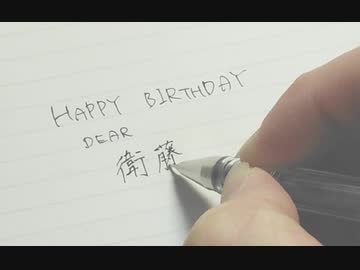 HAPPY BIRTHDAY
DEAR
衛藤